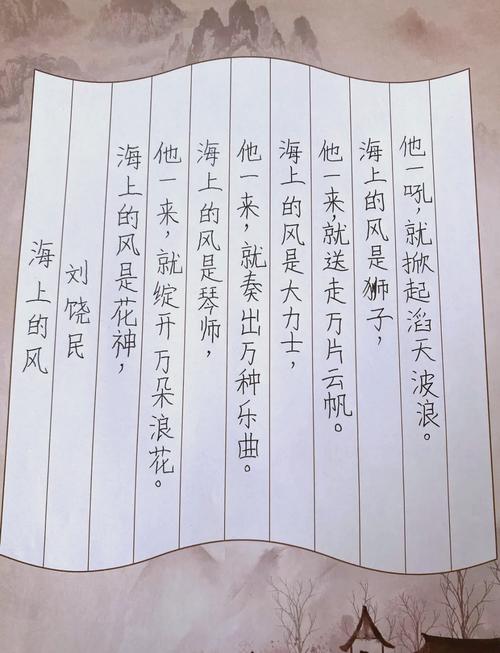 海上的风
刘饶民
海上的风是花神，
他一来，就绽开万朵浪花。
海上的风是琴师，
他一来，就奏出万种乐曲。
海上的风是大力士，
他一来，就送走万片云帆。
海上的风是狮子，
他一吼，就掀起滔天波浪。